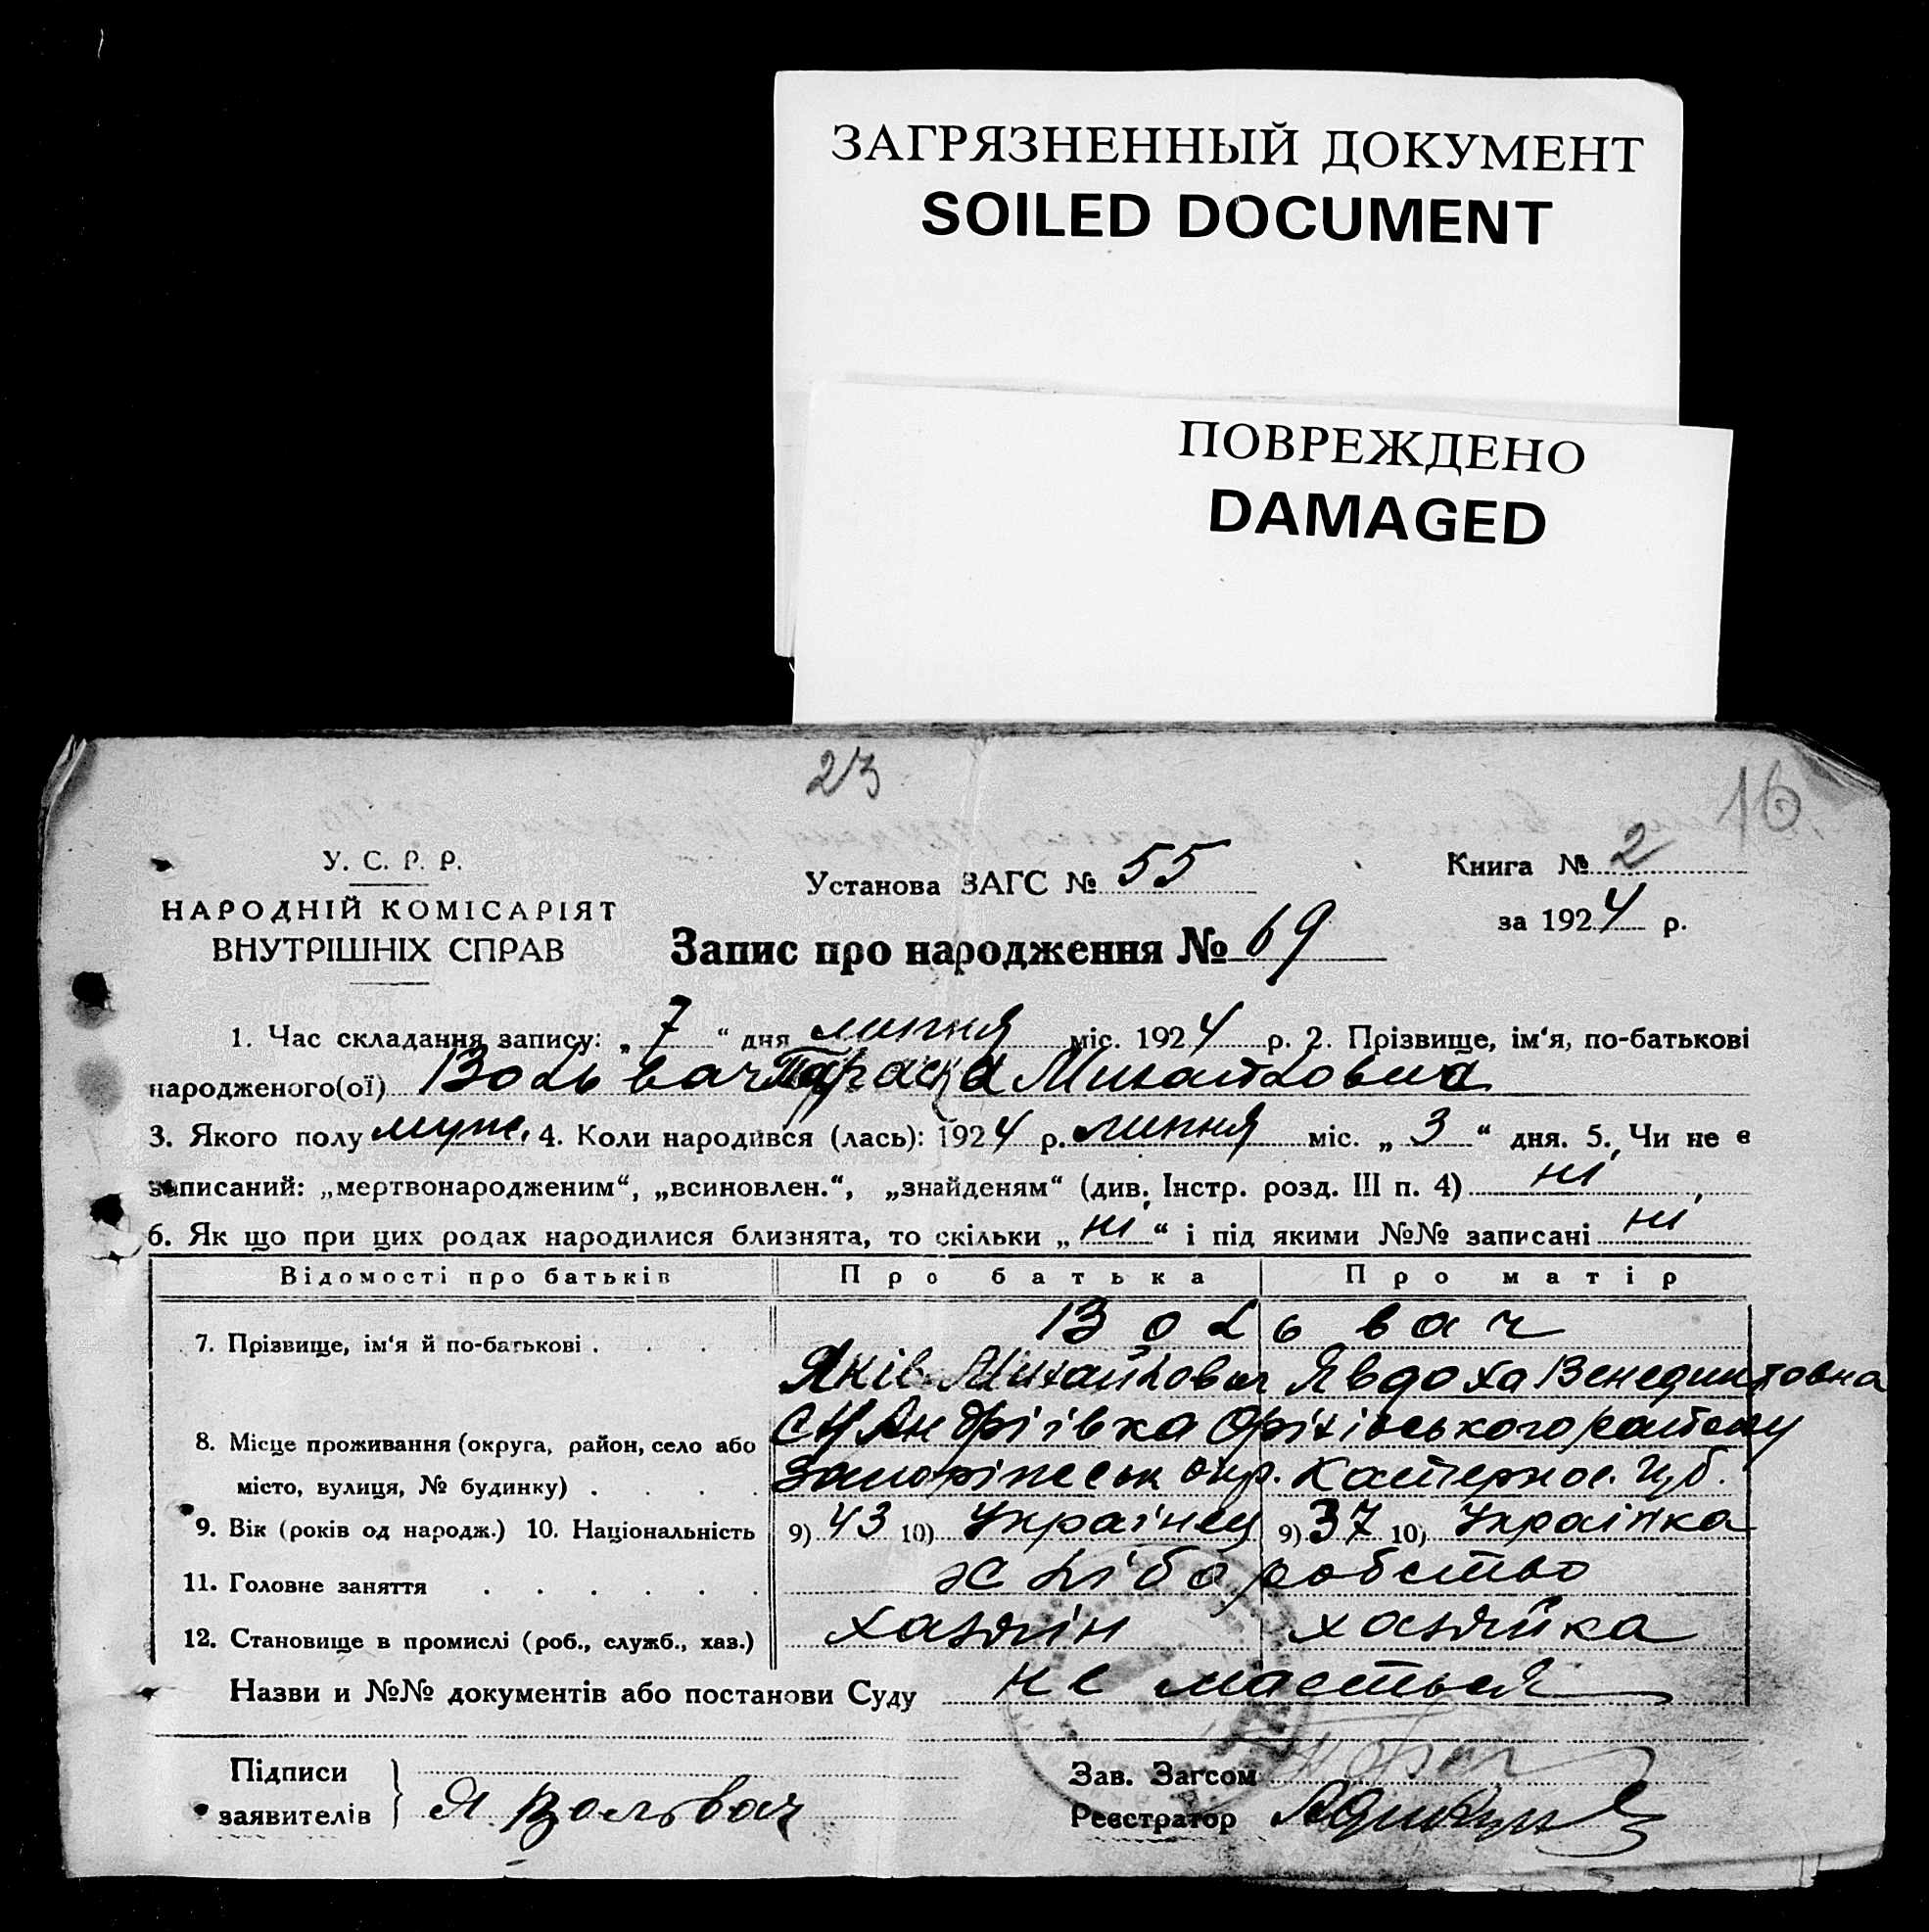 ЗАГРЯЗНЕННЫЙ ДОКУМЕНТ
SOILED DOCUMENT
ПОВРЕЖДЕНО
DAMAGED
23
16
У. С. Р. Р.
НАРОДНІЙ КОМІСАРІЯТ
ВНУТРІШНІХ СПРАВ
Установа ЗАГС № 55
Книга № 2
за 1924 р.
Запис про народження № 69
1. Час складання запису: „ 7 “ дня липня міс. 1924 р. 2. Прізвище, ім‘я, по-батькові
народженого(ої) Вольвач
3. Якого полу муж. 4. Коли народився (лась): 1924 р. липня міс. „ 3 “ дня. 5. Чи не є
записаний: „мертвонародженим“, „всиновлен.“, „знайденям“ (див. Інстр. розд. III п. 4) ні,
6. Як що при цих родах народилися близнята, то скільки „ ні “ і під якими №№ записані ні
Відомості про батьків Про батька Про матір
7. Прізвище, ім‘я й по-батькові . . . . Вольвач
Яків Михайлович Явдоха Венедиктовна
8. Місце проживання (округа, район, село або місто, вулиця, № будинку) . . . . Андріївка Оріхівського району
Запоріжськ окр. Катерносл. губ.
9. Вік (років од народж.) 10. Національність 9) 43 10) Українец 9) 37 10) Українка
11. Головне заняття . . . . . . хліборобство
12. Становище в промислі (роб., служб., хаз.) хазяїн хазяйка
Назви и №№ документів або постанови Суду не мається
Підписи
заявителів } Я Вольвач
Зав. Загсом
Реєстратор